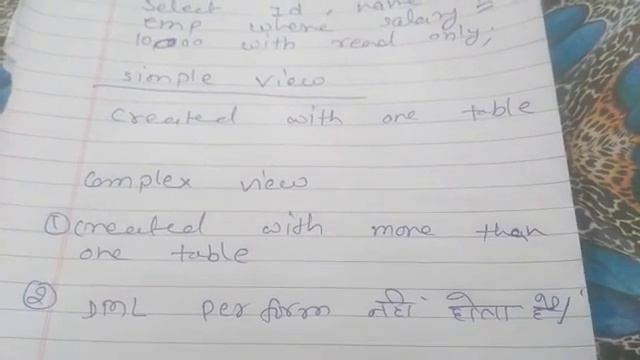 select id, name
emp where salary =
10000 with read only;
simple view
created with one table
complex view
① created with more than
one table
② DML perform नहीं होता है।